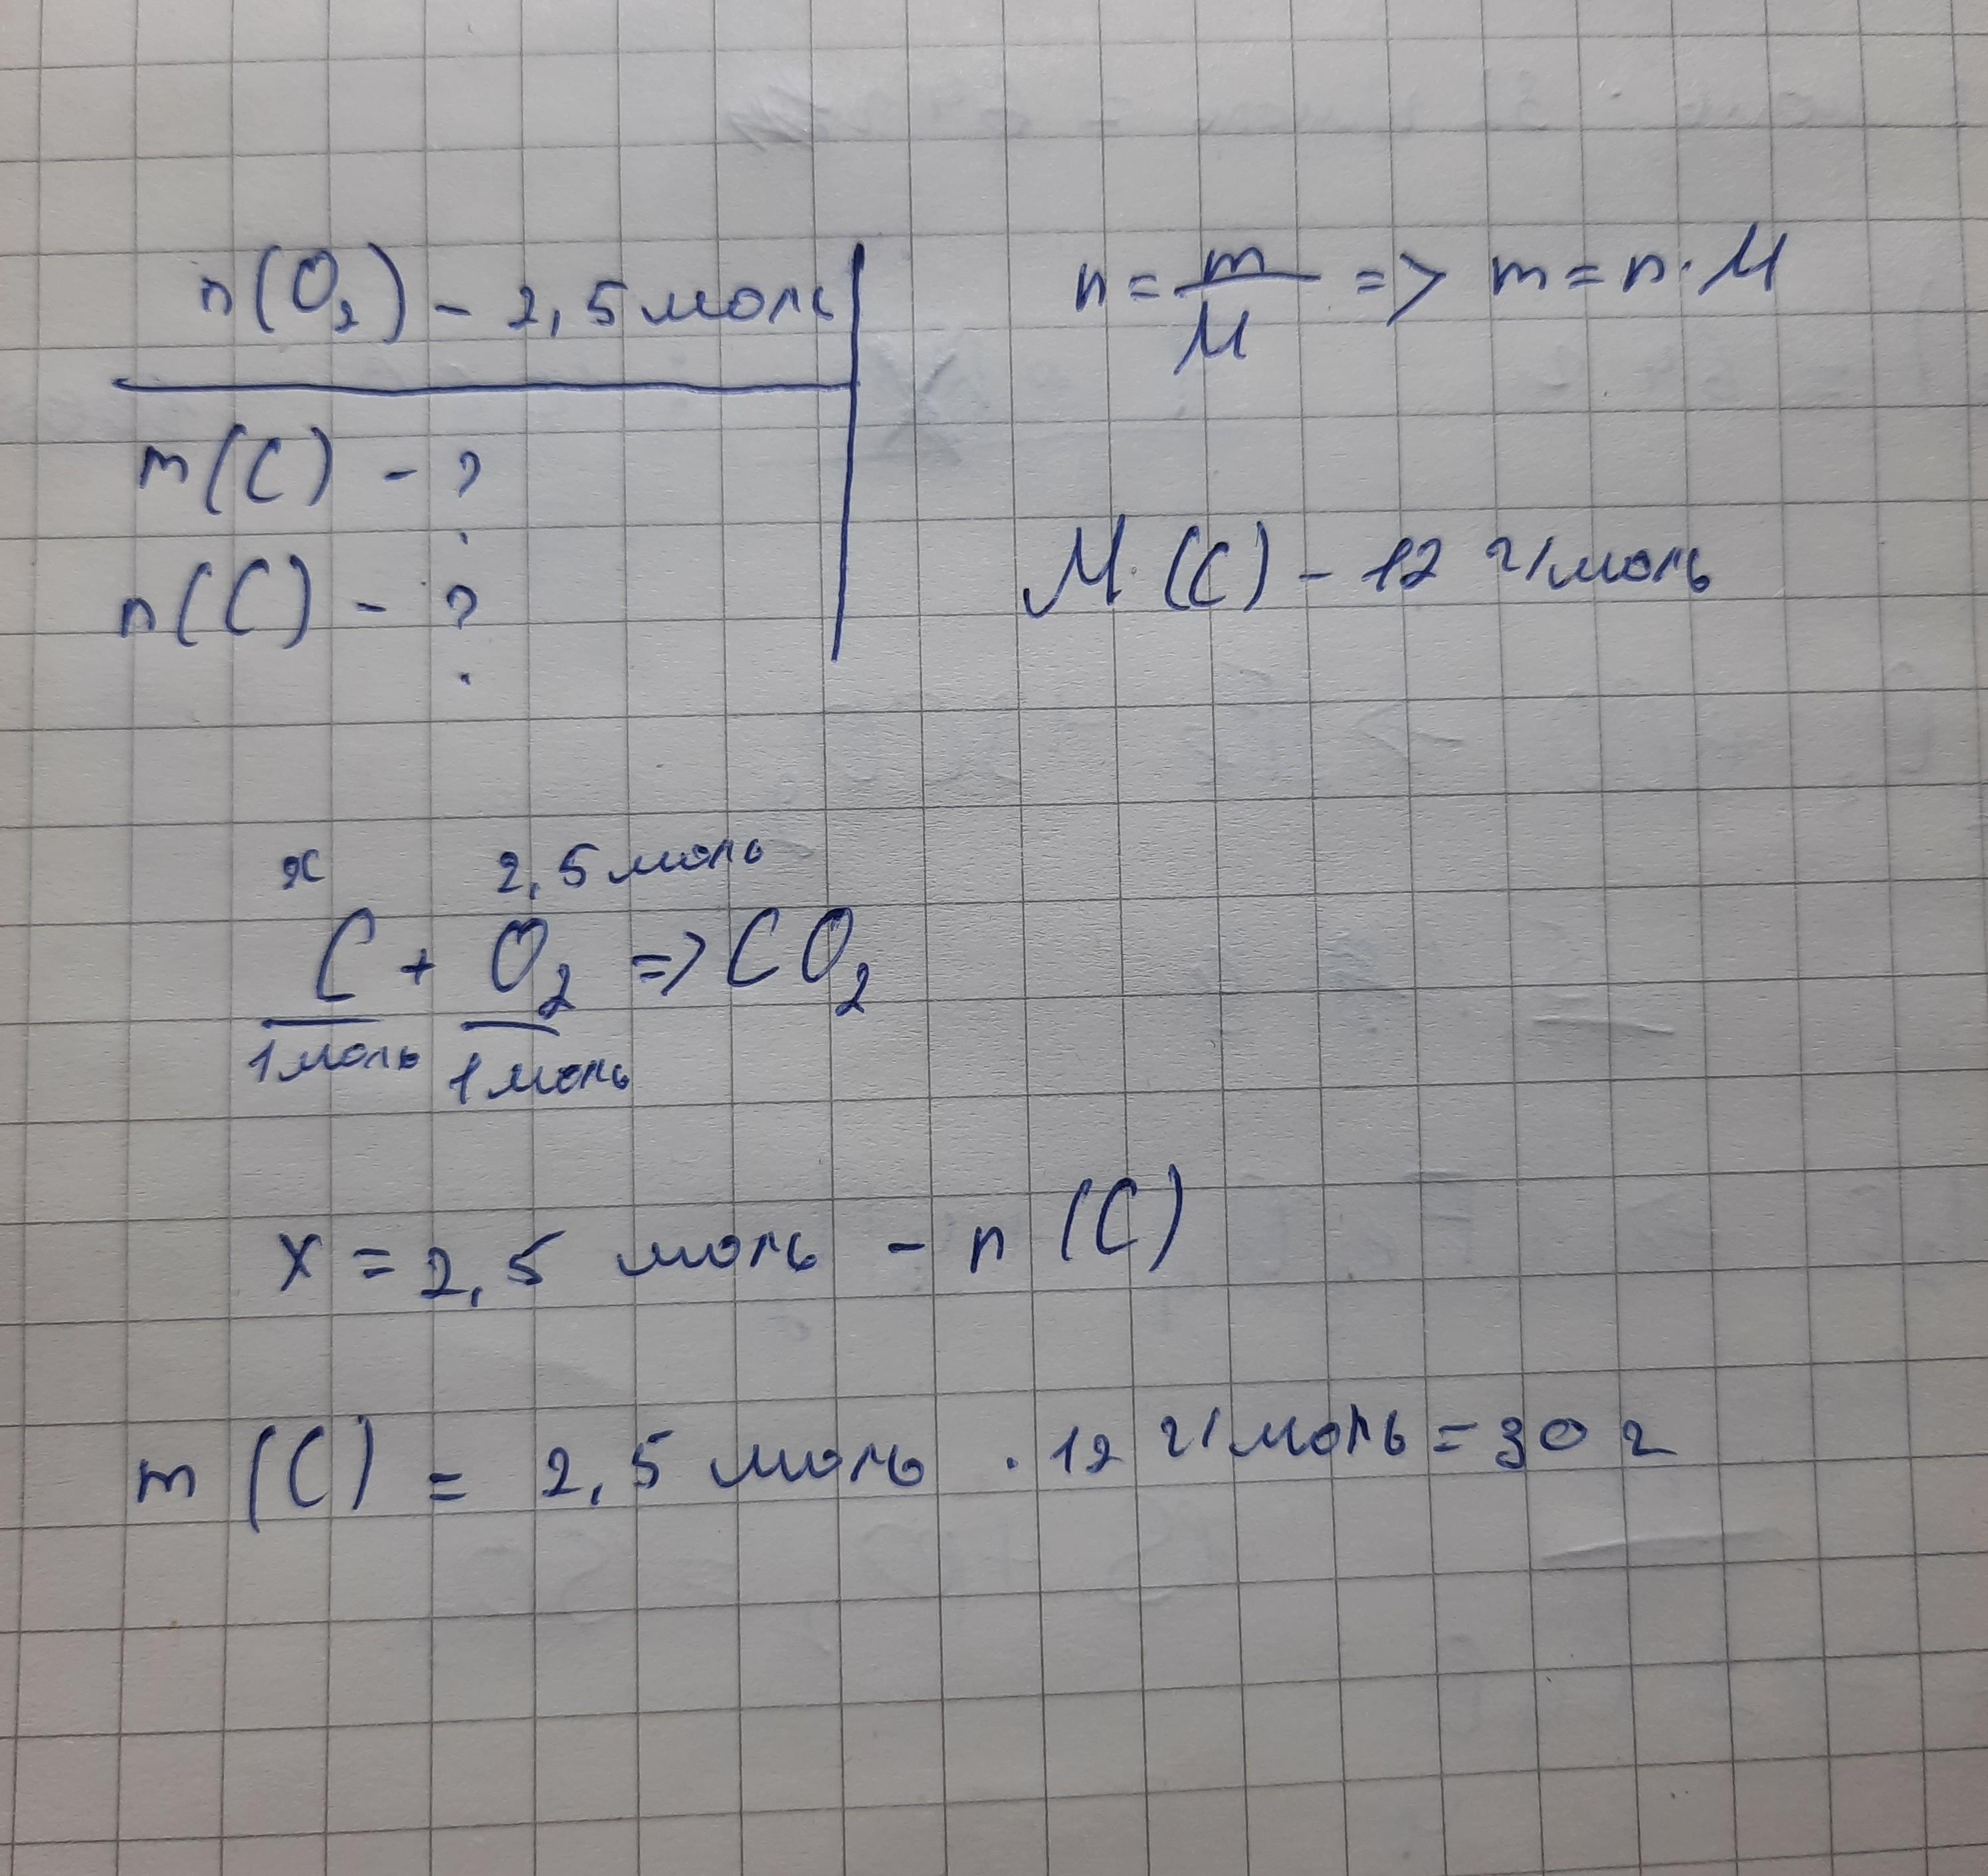 n(O₂) - 2,5 моль
m(C) - ?
n(C) - ?
n = m/M => m = n · M
M(C) - 12 г/моль
x 2,5 моль
C + O₂ => CO₂
1 моль 1 моль
x = 2,5 моль - n(C)
m(C) = 2,5 моль · 12 г/моль = 30 г